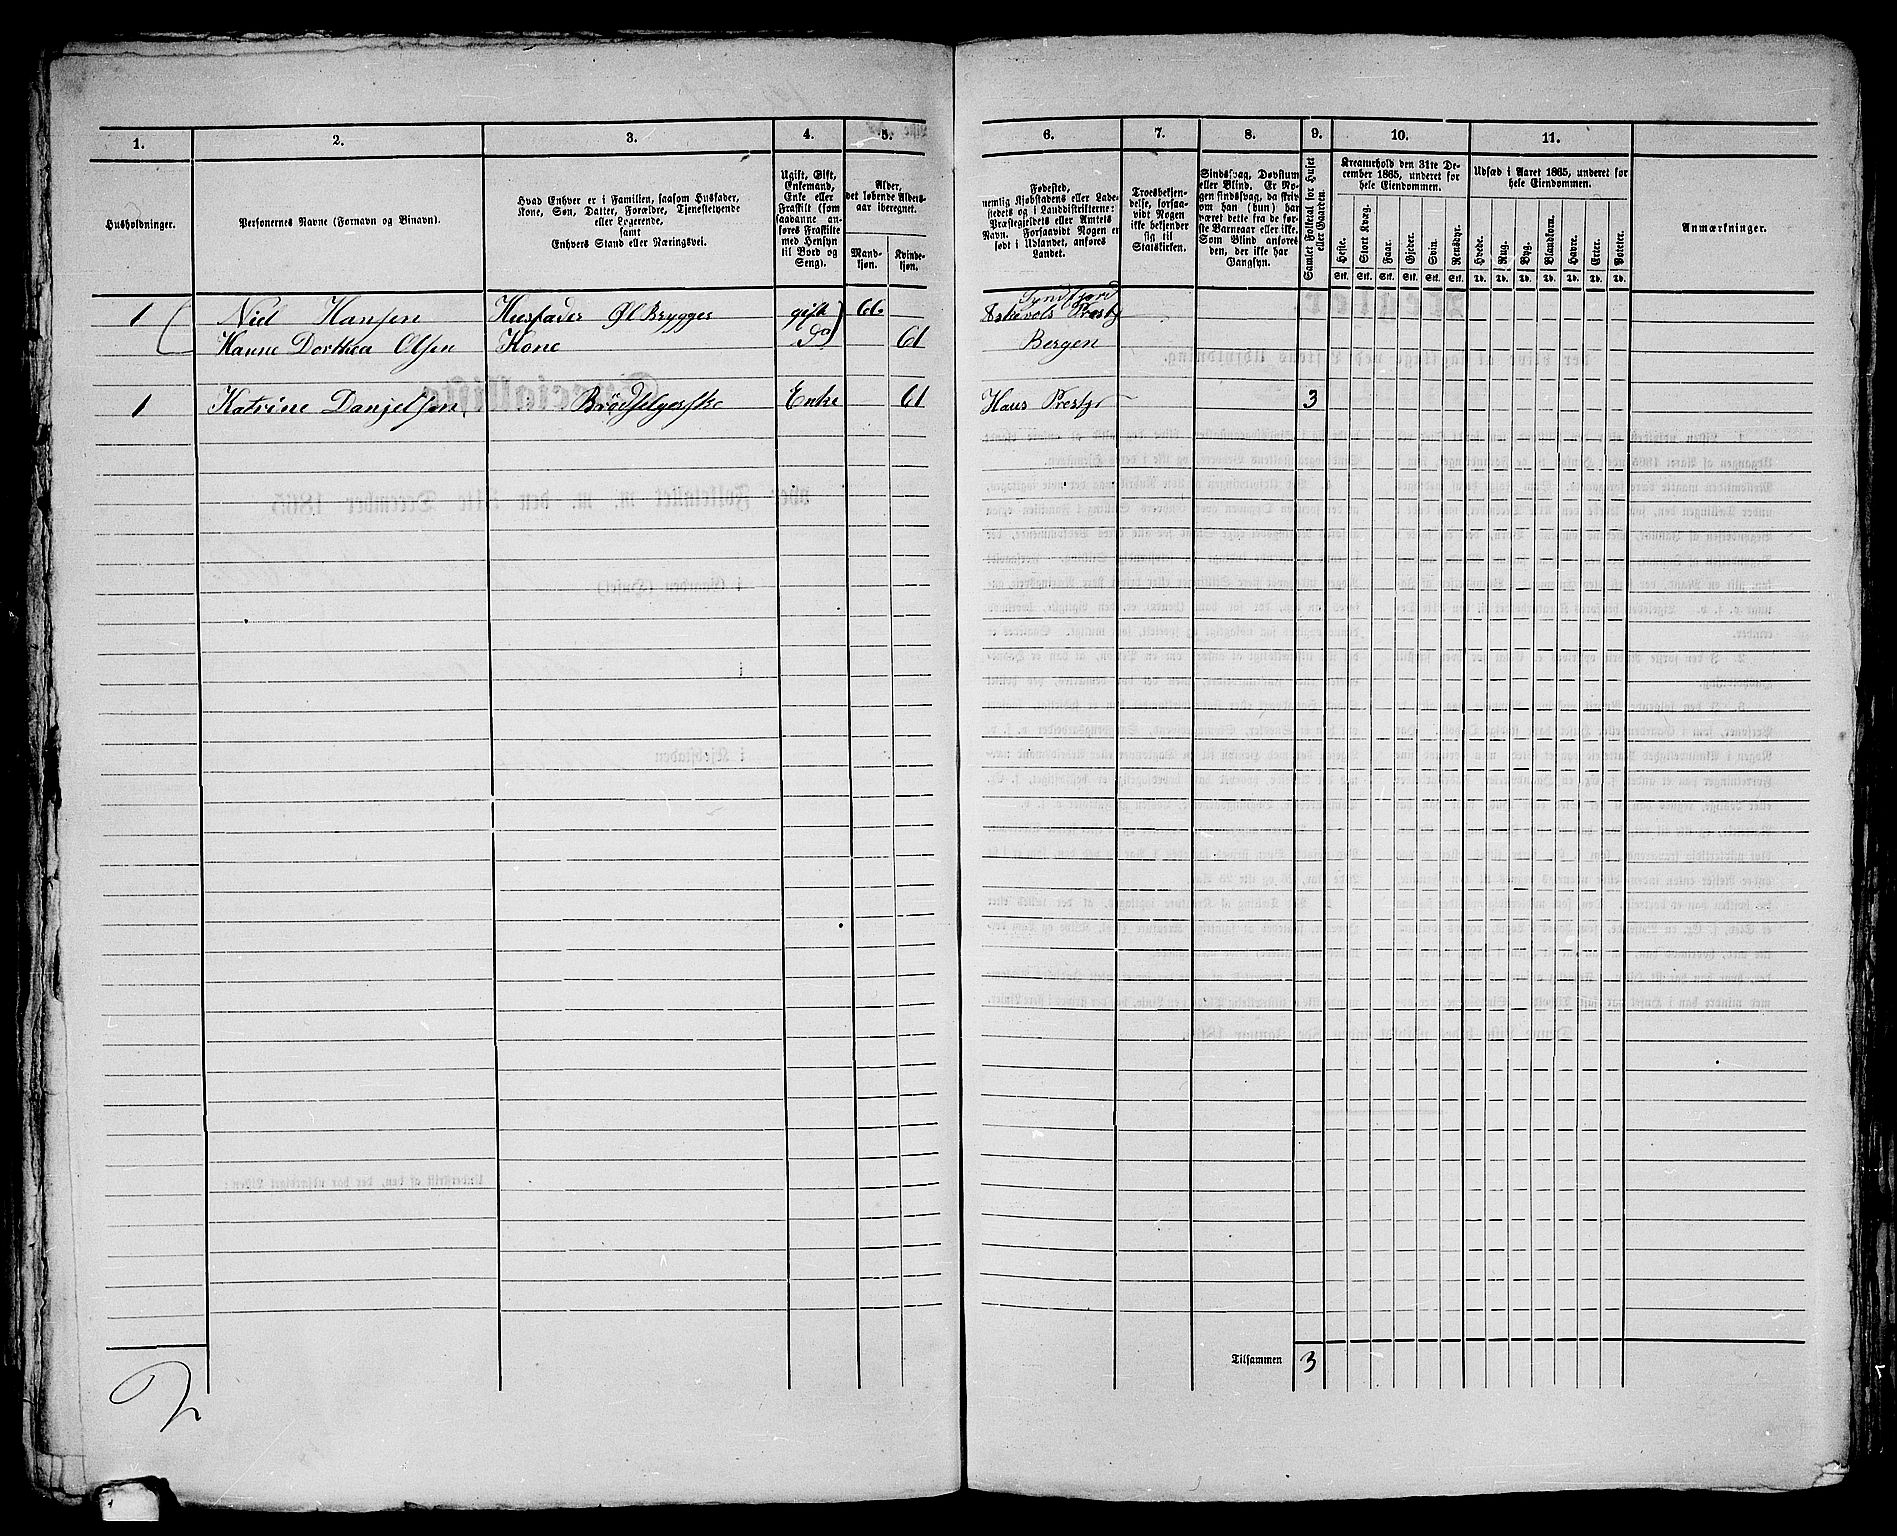 1. 2. 3. 4. 5. 6. 7. 8. 9. 10. 11.
Husholdninger.
Personernes Navne (Fornavn og Binavn).
Hvad Enhver er i Familien, saasom Husfader,
Kone, Søn, Datter, Forældre, Tjenestetyende
eller Logerende,
samt
Enhvers Stand eller Næringsvei.
Ugift, Gift,
Enkemand,
Enke eller
Fraskilt (som
saadanne an-
føres Fraskilte
med Hensyn
til Bord og
Seng).
Alder,
det løbende Alders-
aar iberegnet.
Mand-
kjøn.
Kvinde-
kjøn.
Fødested,
nemlig Kjøbstadens eller Lade-
stedets og i Landdistrikterne:
Præstegjeldets eller Amtets
Navn. Forsaavidt Nogen er
født i Udlandet, anføres
Landet.
Troesbekjen-
delse, forsaa-
vidt Nogen
ikke bekjender
sig til
Statskirken.
Sindssvag, Døvstum
eller Blind. Er No-
gen sindssvag, da skriv
om han (hun) har
været dette fra de før-
ste Barneaar eller ikke.
Som Blind anføres
den, der ikke har
Gangsyn.
Samlet Folketal for Huset
eller Gaarden.
Kreaturhold den 31te De-
cember 1865, underet for
hele Eiendommen.
Heste. Stort Kvæg. Faar. Gjeder. Svin. Rensdyr.
Stk. Stk. Stk. Stk. Stk. Stk.
Udsæd i Aaret 1865, underet for
hele Eiendommen.
Hvede. Rug. Byg. Blandkorn. Havre. Erter. Poteter.
Td. Td. Td. Td. Td. Td. Td.
Anmærkninger.
1 Niel Hansen Husfader Øl Brygger gift 66
Hanne Dorthea Olsen Kone Do 61 Bergen
1 Katrine Danjelsen Brødselgerske Enke 61 Haus Prestgj 3
Tilsammen 3